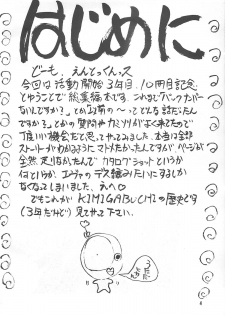 はじめに
どーも、えんとっくんっス
今回は活動開始3年目、10冊目記念
とゆうことで総集編本です。これまで「バックナンバー
ないんですか?」とか「以前の〜ってどんな話だったん
ですか?」とかの質問やカミソリがよく来てたので
丁度いい機会だと思ってやってみました。本当は全部
ストーリーがわかるようにマトメたかったんですが、ページが
全然足りなかったんで カタログショットというか
何というか、エヴァのデス編みたいにするしか
なくなってしまいました。えへ
でもこれがKIMIGABUCHIの歴史です
(3年だけど) 見てやって下さい。